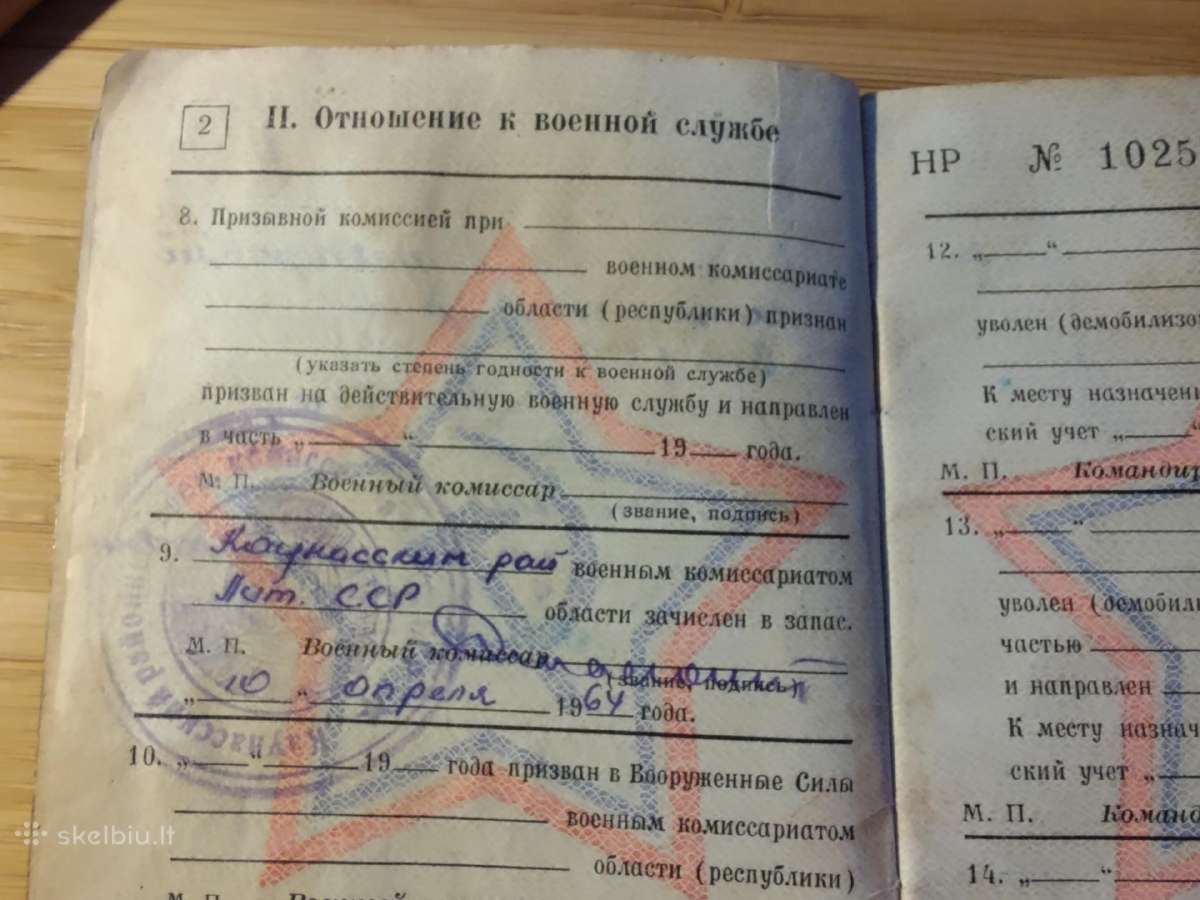 2
II. Отношение к военной службе
8. Призывной комиссией при
военном комиссариате
области (республики) признан
(указать степень годности к военной службе)
призван на действительную военную службу и направлен
в часть „ “ 19 года.
М. П. Военный комиссар
(звание, подпись)
9. Каунасским рай военным комиссариатом
Лит. ССР области зачислен в запас.
М. П. Военный комиссар
(звание, подпись)
„ 10 “ апреля 1964 года.
10. „ “ 19 года призван в Вооруженные Силы
военным комиссариатом
области (республики)
М. П. Военный
Каунасский район
НР № 1025
12. „ “
уволен (демобилизо
К месту назначени
ский учет „ “
М. П. Командир
13. „ “
уволен (демобили
частью
и направлен
К месту назнач
ский учет „
М. П. Команд
14. „ “
skelbiu.lt